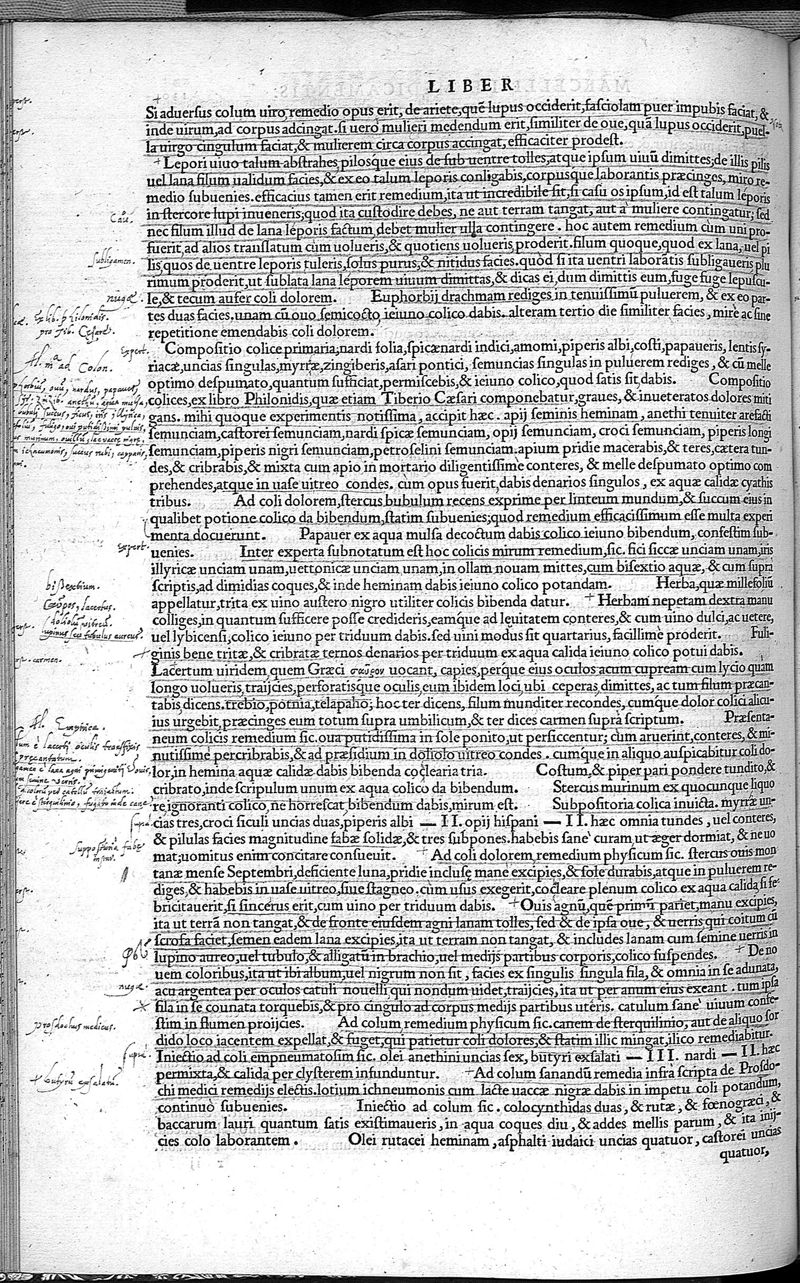 LIBER
Si aduersus colum uiro remedio opus erit, de ariete, quē lupus occiderit, fasciolam puer impubis faciat, &
inde uirum, ad corpus adcingat. si uero mulieri medendum erit, similiter de oue, quā lupus occiderit, puel-
la uirgo cingulum faciat, & mulierem circa corpus accingat, efficaciter prodest.
+ Lepori uiuo talum abstrahes, pilosque eius de sub uentre tolles, atque ipsum uiuū dimittes; de illis pilis
uel lana filum ualidum facies, & ex eo talum leporis conligabis, corpusque laborantis præcinges, miro re-
medio subuenies. efficacius tamen erit remedium, ita ut incredibile sit, si casu os ipsum, id est talum leporis
Caue.
in stercore lupi inueneris; quod ita custodire debes, ne aut terram tangat, aut à muliere contingatur; sed
nec filum illud de lana leporis factum, debet mulier ulla contingere. hoc autem remedium cùm uni pro-
fuerit, ad alios translatum cùm uolueris, & quotiens uolueris proderit. filum quoque, quod ex lana, uel pi
subligamen.
lis, quos de uentre leporis tuleris, solus purus, & nitidus facies. quòd si ita uentri laboratis subligaueris plu
rimum proderit, ut sublata lana leporem uiuum dimittas, & dicas ei, dum dimittis eum, fuge fuge lepuscu-
nugæ.
le, & tecum aufer coli dolorem. Euphorbij drachmam rediges in tenuissimū puluerem, & ex eo par-
Ex lib. philonidis.
tes duas facies. unam cū ouo semicosto ieiuno colico dabis. alteram tertio die similiter facies, mirè ac sine
pro Tib. Cesare.
repetitione emendabis coli dolorem.
Expert.
Compositio colice primaria, nardi folia, spicænardi indici, amomi, piperis albi, costi, papaueris, lentis sy-
ad Colon.
riacæ, uncias singulas, myrræ, zingiberis, asari pontici, semuncias singulas in puluerem rediges, & cū melle
optimo despumato, quantum sufficiat, permiscebis, & ieiuno colico, quod satis sit, dabis. Compositio
colices, ex libro Philonidis, quæ etiam Tiberio Cæsari componebatur, graues, & inueteratos dolores miti
gans. mihi quoque experimentis notissima, accipit hæc. apij seminis heminam, anethi tenuiter arefacti
semunciam, castorei semunciam, nardi spicæ semunciam, opij semunciam, croci semunciam, piperis longi
semunciam, piperis nigri semunciam, petroselini semunciam. apium pridie macerabis, & teres, cætera tun-
des, & cribrabis, & mixta cum apio in mortario diligentissime conteres, & melle despumato optimo com
prehendes, atque in uase uitreo condes. cum opus fuerit, dabis denarios singulos, ex aquæ calidæ cyathis
tribus. Ad coli dolorem, stercus bubulum recens exprime per linteum mundum, & succum eius in
qualibet potione colico da bibendum, statim subuenies; quod remedium efficacissimum esse multa experi
menta docuerunt. Papauer ex aqua mulsa decoctum dabis colico ieiuno bibendum, confestim sub-
Expert.
uenies. Inter experta subnotatum est hoc colicis mirum remedium, sic. fici siccæ unciam unam, iris
illyricæ unciam unam, uettonicæ unciam unam, in ollam nouam mittes, cum bisextio aquæ, & cum supra
bisextium.
scriptis, ad dimidias coques, & inde heminam dabis ieiuno colico potandam. Herba, quæ millefoliū
appellatur, trita ex uino austero nigro utiliter colicis bibenda datur. + Herbam nepetam dextra manu
colliges, in quantum sufficere posse credideris, eamq́ue ad leuitatem conteres, & cum uino dulci, ac uetere,
uel lybicensi, colico ieiuno per triduum dabis. sed uini modus sit quartarius, facillimè proderit. Fuli-
carmen.
ginis bene tritæ, & cribratæ ternos denarios per triduum ex aqua calida ieiuno colico potui dabis.
Lacertum uiridem, quem Græci σαῦρον uocant, capies, perque eius oculos acum cupream cum lycio quàm
longo uolueris, traijcies, perforatisq́ue oculis, eum ibidem loci, ubi ceperas, dimittes, ac tum filum præcan-
tabis, dicens. trebio, potnia, telapaho; hoc ter dicens, filum munditer recondes, cumque dolor colici alicu-
ius urgebit, præcinges eum totum supra umbilicum, & ter dices carmen suprà scriptum. Præsenta-
neum colicis remedium sic. oua putidissima in sole ponito, ut persiccentur; cum aruerint, conteres, & mi-
nutissime percribrabis, & ad præsidium in doliolo uitreo condes. cumque in aliquo auspicabitur coli do-
lor, in hemina aquæ calidæ dabis bibenda coclearia tria. Costum, & piper pari pondere tundito, &
cribrato, inde scripulum unum ex aqua colico da bibendum. Stercus murinum ex quocunque liquo
re ignoranti colico, ne horrescat, bibendum dabis, mirum est. Subpositoria colica inuicta. myrræ un-
cias tres, croci siculi uncias duas, piperis albi — II. opij hispani — II. hæc omnia tundes, uel conteres,
& pilulas facies magnitudine fabæ solidæ, & tres subpones. habebis sanè curam ut æger dormiat, & ne uo
mat; uomitus enim concitare consueuit. + Ad coli dolorem remedium physicum sic. stercus ouis mon
tanæ mense Septembri, deficiente luna, pridie incluse manè excipies, & sole durabis, atque in puluerem re-
diges, & habebis in uase uitreo, siue stagneo. cùm usus exegerit, cocleare plenum colico ex aqua calida, si fe
bricitauerit, si sincerus erit, cum uino per triduum dabis. + Ouis agnū, quē primū pariet, manu excipies,
ita ut terrā non tangat, & de fronte eiusdem agni lanam tolles, sed & de ipsa oue, & uerris qui coitum cū
scrofa faciet, semen eadem lana excipies, ita ut terram non tangat, & includes lanam cum semine uerris in
lupino aureo, uel tubulo, & alligatū in brachio, uel medijs partibus corporis, colico suspendes. + De no
uem coloribus, ita ut ibi album, uel nigrum non sit, facies ex singulis singula fila, & omnia in se adunata,
nugæ.
acu argentea per oculos catuli nouelli, qui nondum uidet, traijcies, ita ut per anum eius exeant. tum ipsa
fila in se counata torquebis, & pro cingulo ad corpus medijs partibus uteris. catulum sanè uiuum confe-
prosdochus medicus.
stim in flumen proijcies. Ad colum remedium physicum sic. canem de sterquilinio, aut de aliquo sor
dido loco iacentem expellat, & fuget, qui patietur coli dolores, & statim illic mingat, ilico remediabitur.
Iniectio ad coli empneumatosim sic. olei anethini uncias sex, butyri exsalati — III. nardi — II. hæc
permixta, & calida per clysterem infunduntur. + Ad colum sanandū remedia infra scripta de Prosdo-
butyrū exsalatū.
chi medici remedijs electis. lotium ichneumonis cum lacte uaccæ nigræ dabis in impetu coli potandum,
continuò subuenies. Iniectio ad colum sic. colocynthidas duas, & rutæ, & fœnogræci, &
baccarum lauri quantum satis existimaueris, in aqua coques diu, & addes mellis parum, & ita inij-
cies colo laborantem. Olei rutacei heminam, asphalti iudaici uncias quatuor, castorei uncias
quatuor,